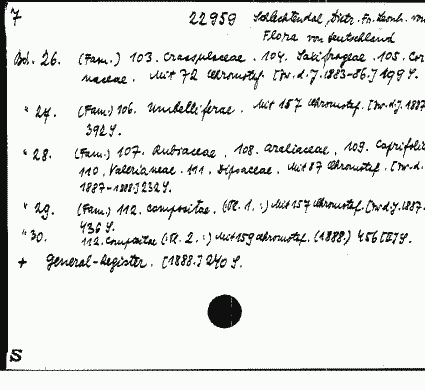 7 22959 Schlechtendal, Dietr. Fr. Leonh. von
Flora von Deutschland
Bd. 26. (Fam.) 103. Crassulaceae. 104. Saxifrageae. 105. Cor
naceae. Mit 72 Chromotaf. [o. d. J. 1883-86.] 199 S.
" 27. (Fam.) 106. Umbelliferae. Mit 157 Chromotaf. [o. d. J. 1887
392 S.
" 28. (Fam.) 107. Rubiaceae. 108. Araliaceae. 109. Caprifoli
110. Valerianeae. 111. Dipsaceae. Mit 87 Chromotaf. [o. d.
1887-1888.] 232 S.
" 29. (Fam.) 112. Compositae. (:Tl. 1.:) Mit 157 Chromotaf. [o. d. J. 1887.
436 S.
" 30. 112. Compositae (:Tl. 2.:) Mit 159 Chromotaf. (1888.) 456 [II] S.
+ General-Register. [1888.] 240 S.
S